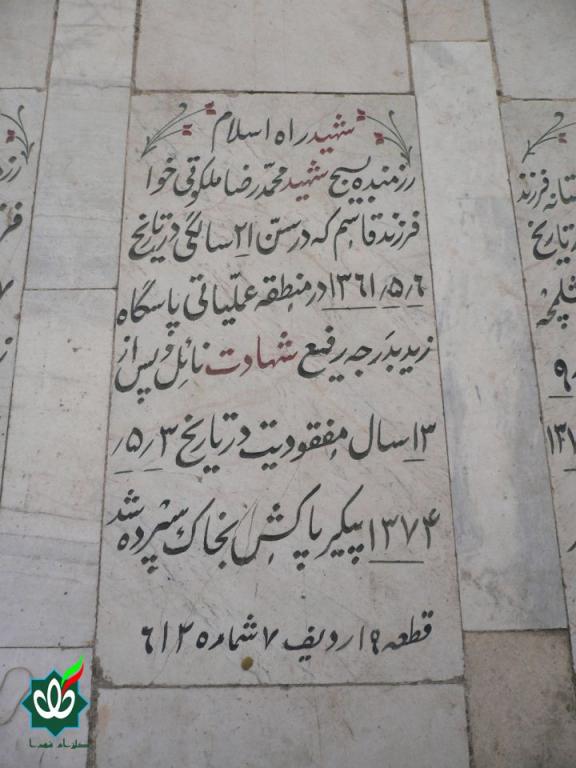 شهید راه اسلام
رزمنده بسیج شهید محمد رضا ملکوتی خوا
فرزند قاسم که در سن ۲۱ سالگی در تاریخ
۱۳۶۱٫۵٫۶ در منطقه عملیاتی پاسگاه
زید بدرجه رفیع شهادت نائل و پس از
۱۳ سال مفقودیت در تاریخ ۳٫۵٫
۱۳۷۴ پیکر پاکش بخاک سپرده شد
قطعه ۱۹ ردیف ۷ شماره